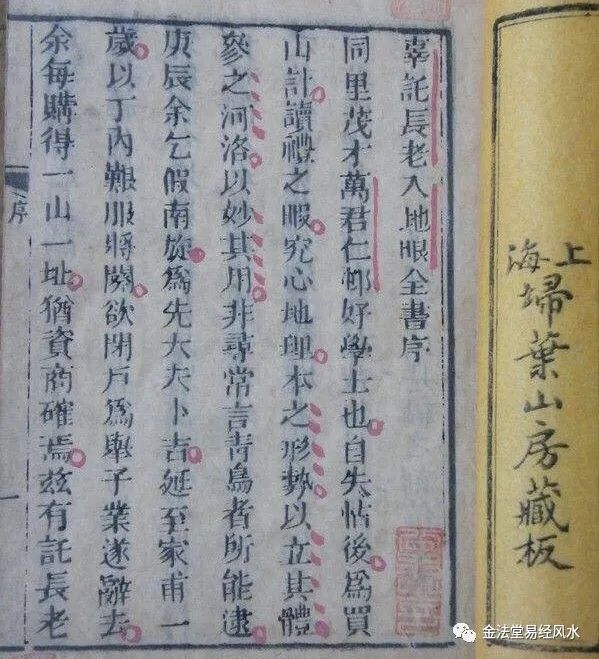 上海
埽葉山房藏板
辜託長老入地眼全書序
同里茂才萬君仁邨好學士也自失怙後爲買
山計讀禮之暇究心地理本之形勢以立其體
參之河洛以妙其用非尋常言靑鳥者所能逮
庚辰余乞假南旋爲先大夫卜吉延至家甫一
歲以丁內艱服將闋欲閉戶爲舉子業遂辭去
余每購得一山一址猶資商確焉茲有託長老
序
一
金法堂易经风水